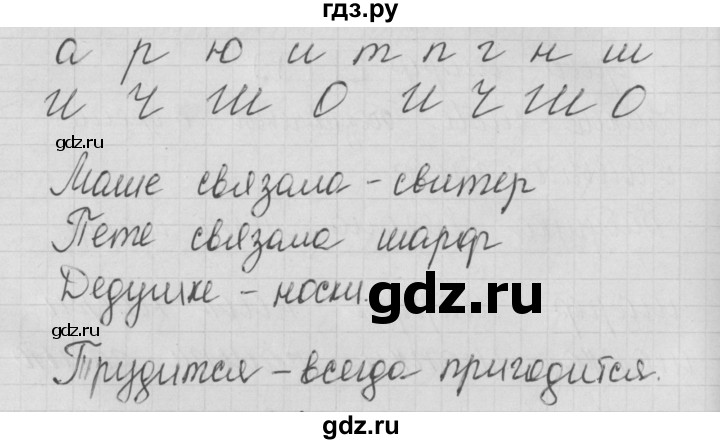 гдз.ру
а р ю и т п г н ш
И Ч Ш О И Ч Ш О
gdz.ru
Маше связала - свитер
Пете связала шарф
Дедушке - носки.
gdz.ru
gdz.ru
Трудится - всегда пригодится.
gdz.ru